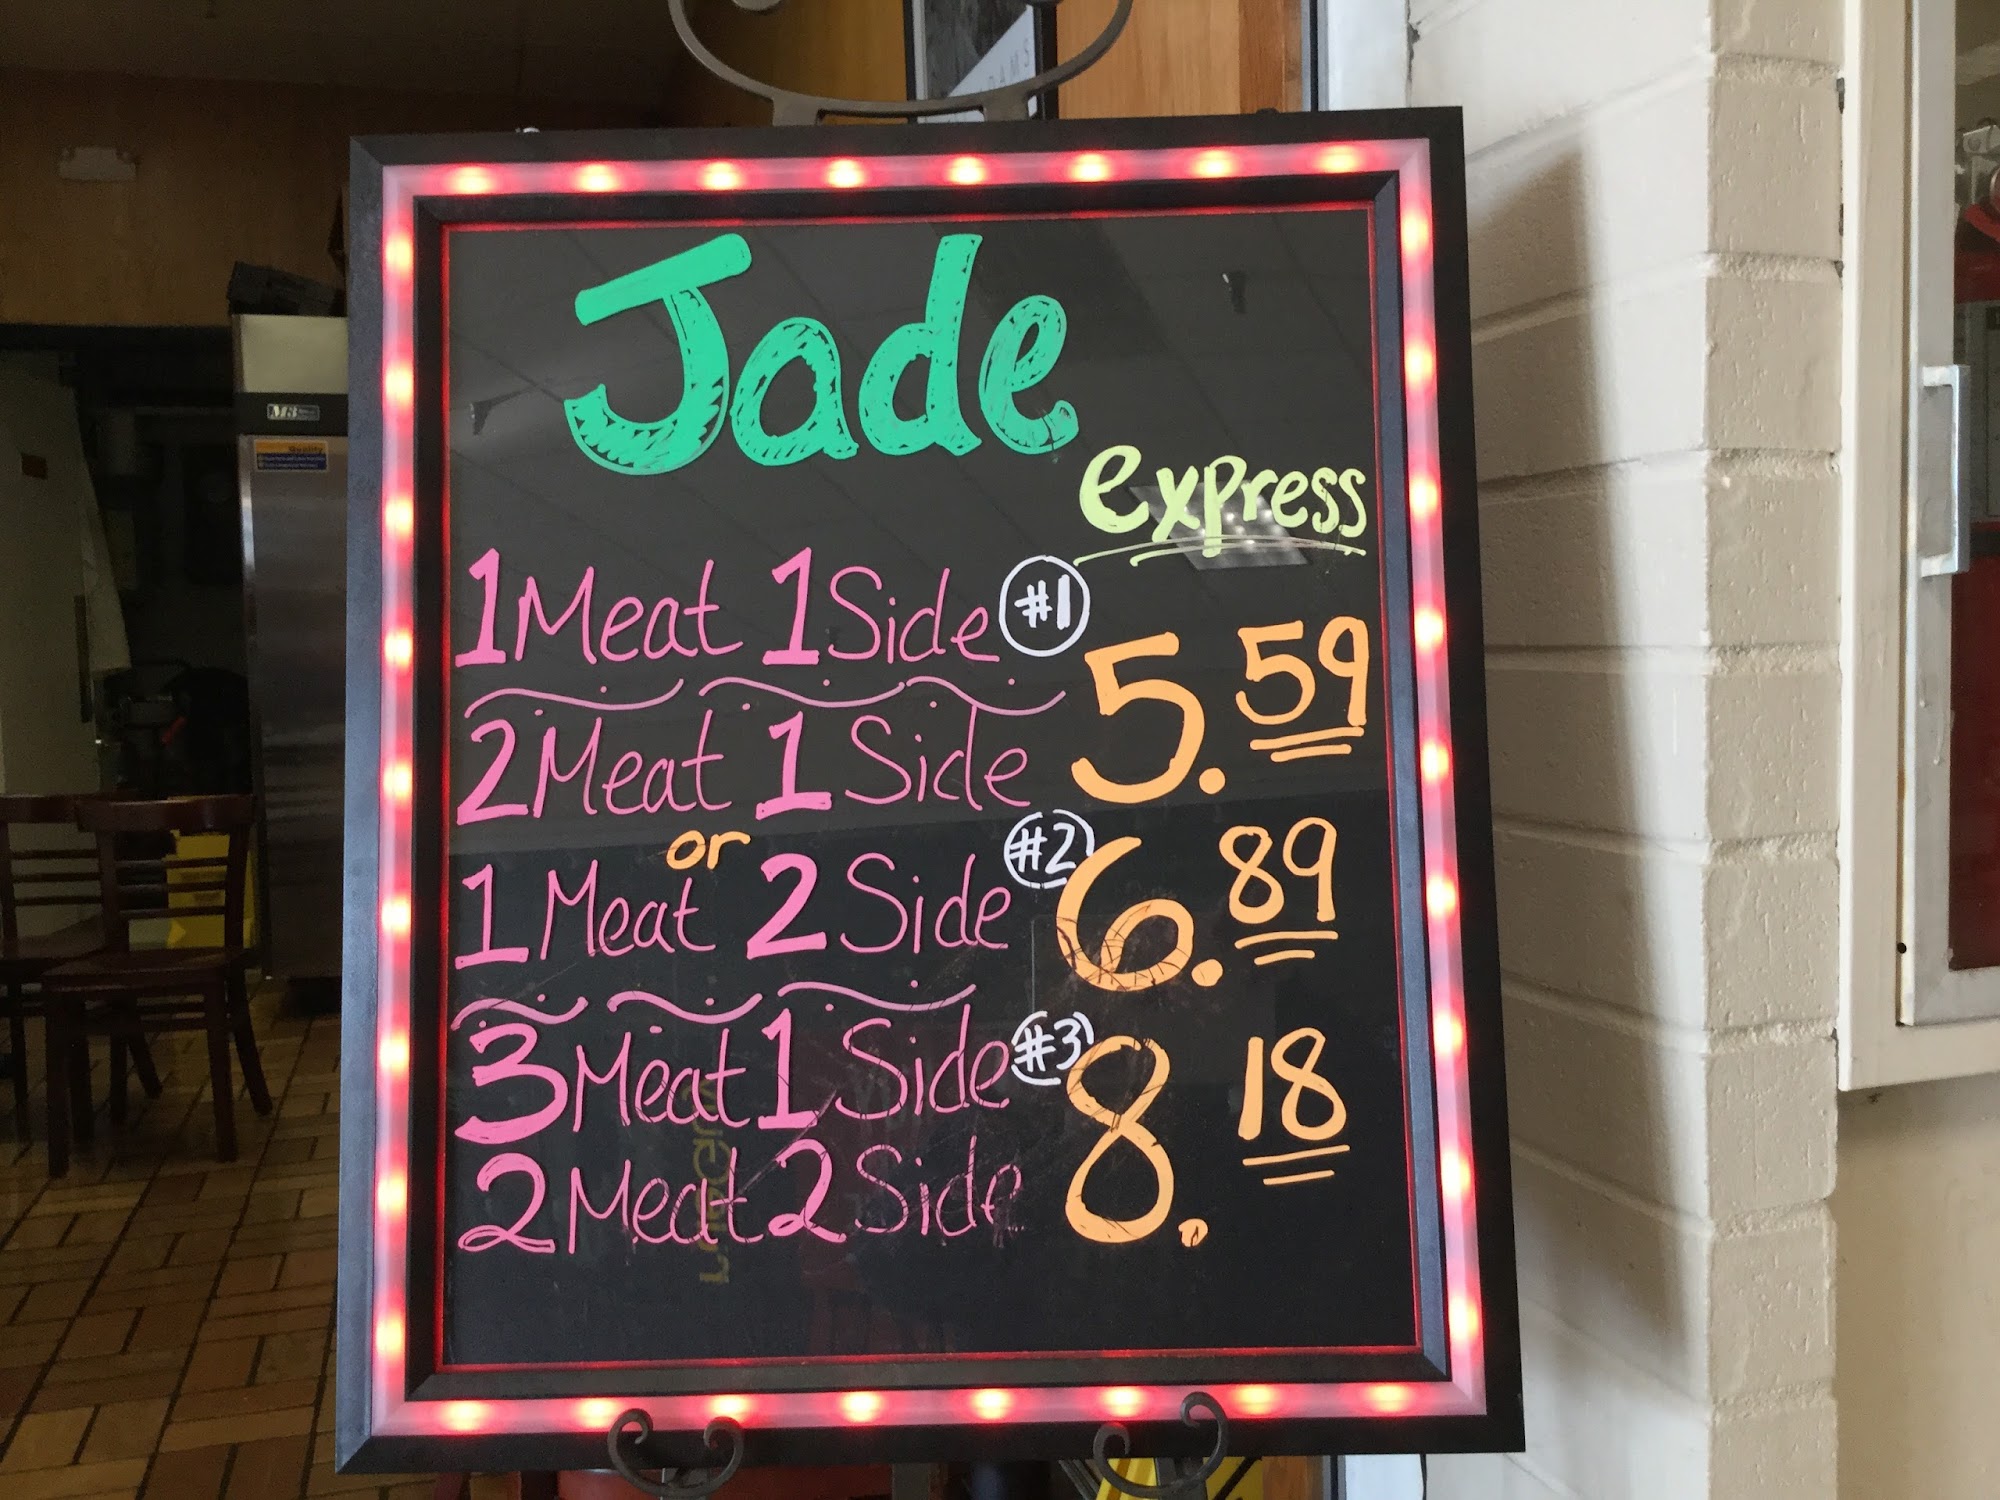 Jade
express
1 Meat 1 Side #1 5.59
2 Meat 1 Side
or
1 Meat 2 Side #2 6.89
3 Meat 1 Side #3 8.18
2 Meat 2 Side
Quality